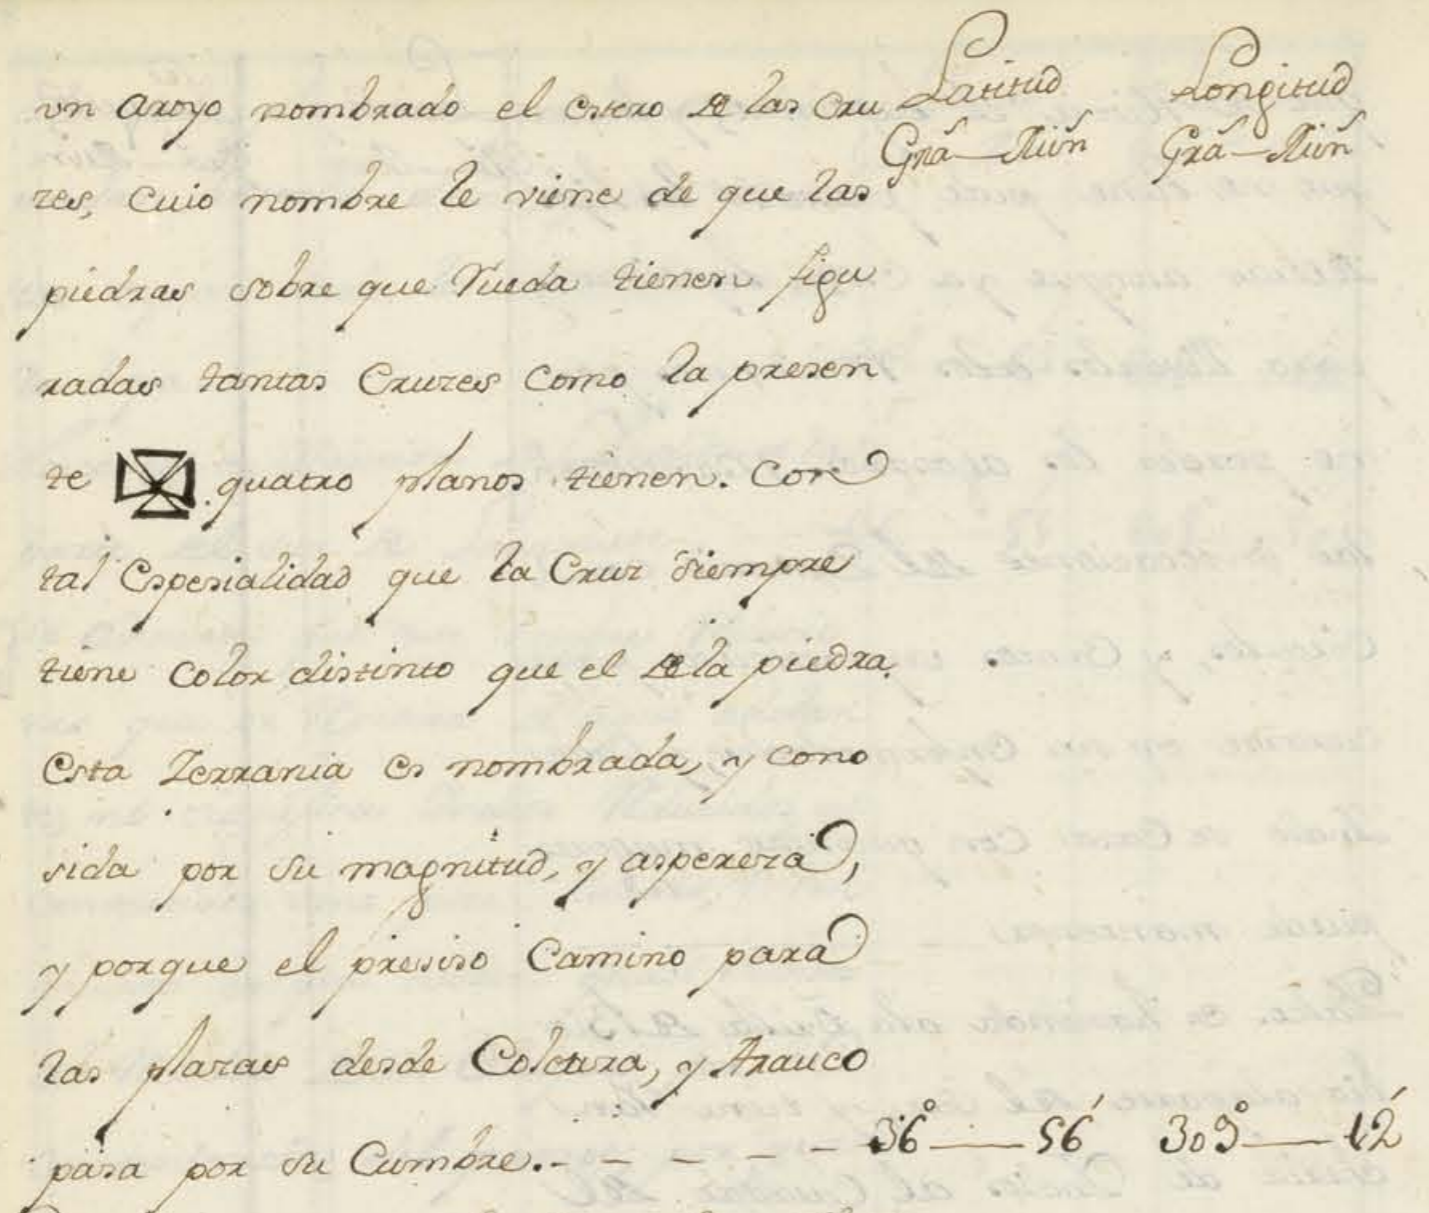 Latitud Longitud
Gra͠ — Min͠ Gra͠ — Min͠
vn aroyo nombrado el estero de las Cru
zes, cuio nombre le viene de que las
piedras sobre que Rueda tienen figu
radas tantas Cruzes como la presen
te ✠ quatro planos tienen. Con
tal Espesialidad que la Cruz siempre
tiene color distinto que el de la piedra.
Esta Serrania es nombrada, y cono
sida por su magnitud, y aspereza,
y porque el presiso Camino para
las plazas desde Colcura, y Arauco
pasa por su Cumbre. - - - - - 36° — 56' 309° — 12'